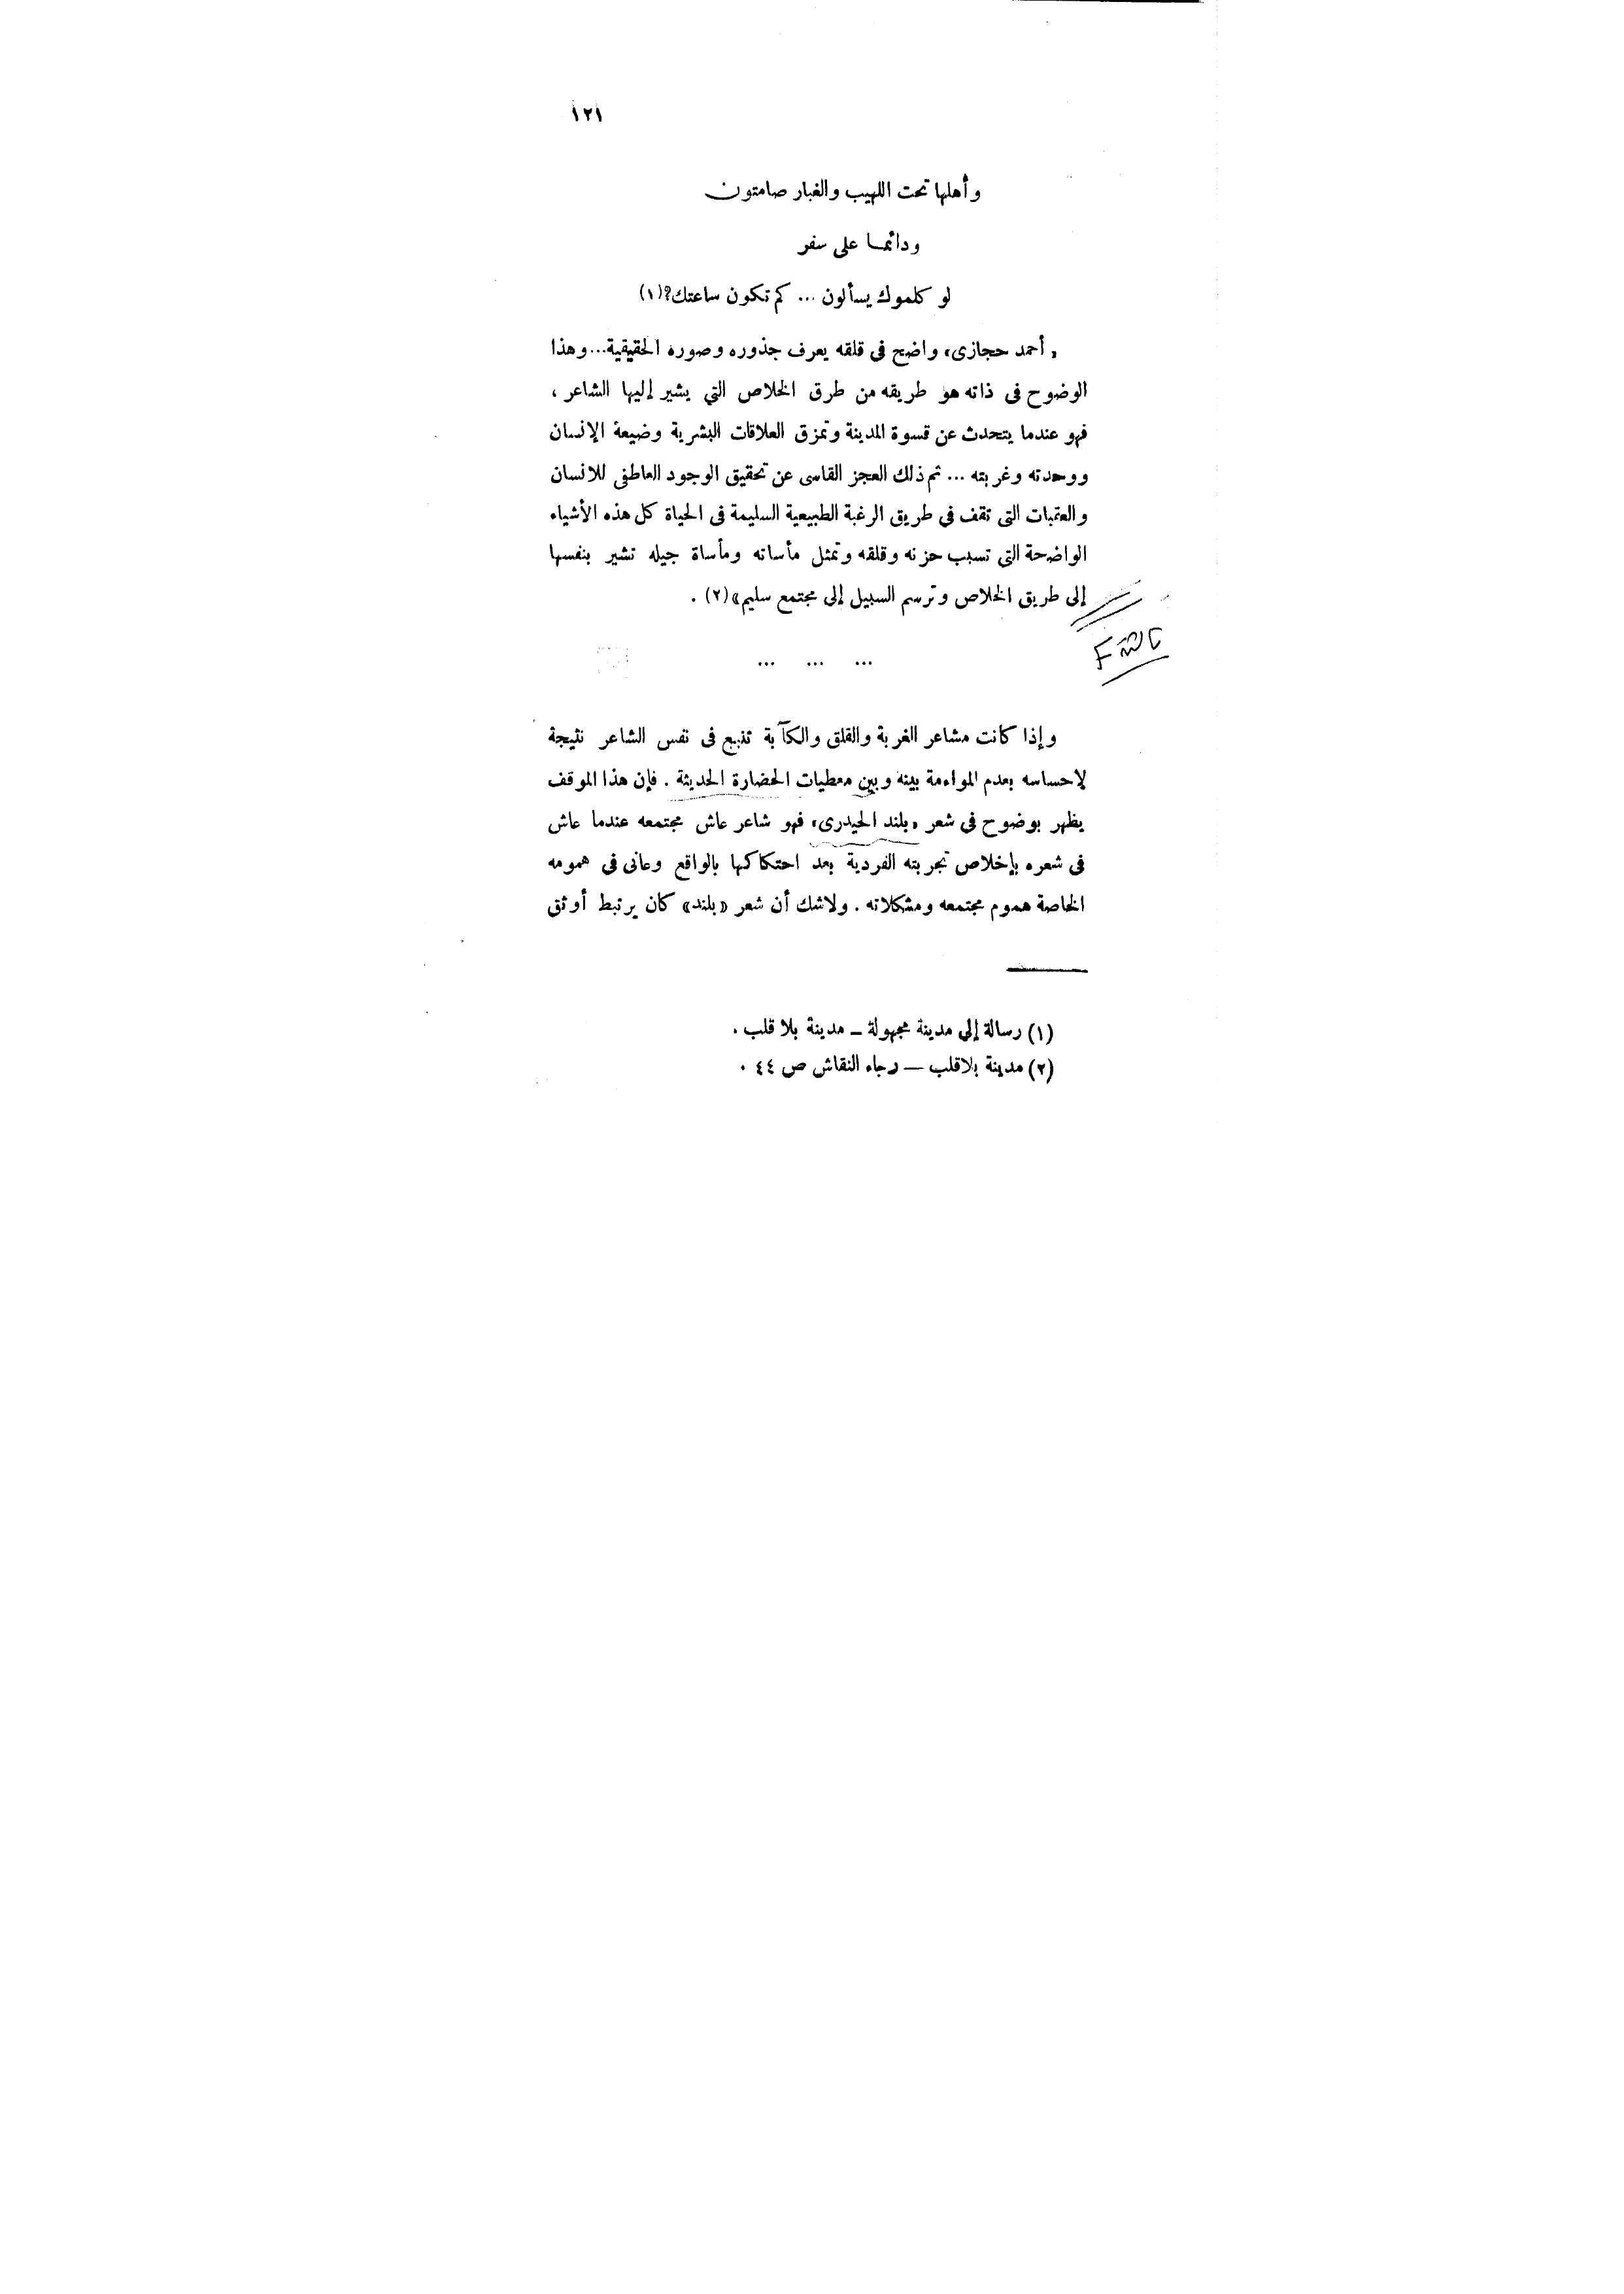 ١٢١
وأهلها تحت اللهيب والغبار صامتون
ودائما على سفر
لو كلموك يسألون ... كم تكون ساعتك؟(١)
«أحمد حجازى» واضح فى قلقه يعرف جذوره وصوره الحقيقية... وهذا
الوضوح فى ذاته هو طريقه من طرق الخلاص التي يشير إليها الشاعر ،
فهو عندما يتحدث عن قسوة المدينة وتمزق العلاقات البشرية وضيعة الإنسان
ووحدته وغربته ... ثم ذلك العجز القاسى عن تحقيق الوجود العاطفى للانسان
والعقبات التى تقف فى طريق الرغبة الطبيعية السليمة فى الحياة كل هذه الأشياء
الواضحة التى تسبب حزنه وقلقه وتمثل مأساته ومأساة جيله تشير بنفسها
إلى طريق الخلاص وترسم السبيل إلى مجتمع سليم»(٢) .
... ... ...
وإذا كانت مشاعر الغربة والقلق والكآبة تنبع فى نفس الشاعر نتيجة
لإحساسه بعدم المواءمة بينه وبين معطيات الحضارة الحديثة . فإن هذا الموقف
يظهر بوضوح فى شعر «بلند الحيدرى» فهو شاعر عاش مجتمعه عندما عاش
فى شعره بإخلاص تجربته الفردية بعد احتكاكها بالواقع وعانى فى همومه
الخاصة هموم مجتمعه ومشكلاته . ولاشك أن شعر «بلند» كان يرتبط أوثق
(١) رسالة إلى مدينة مجهولة ــ مدينة بلا قلب .
(٢) مدينة بلاقلب — رجاء النقاش ص ٤٤ .